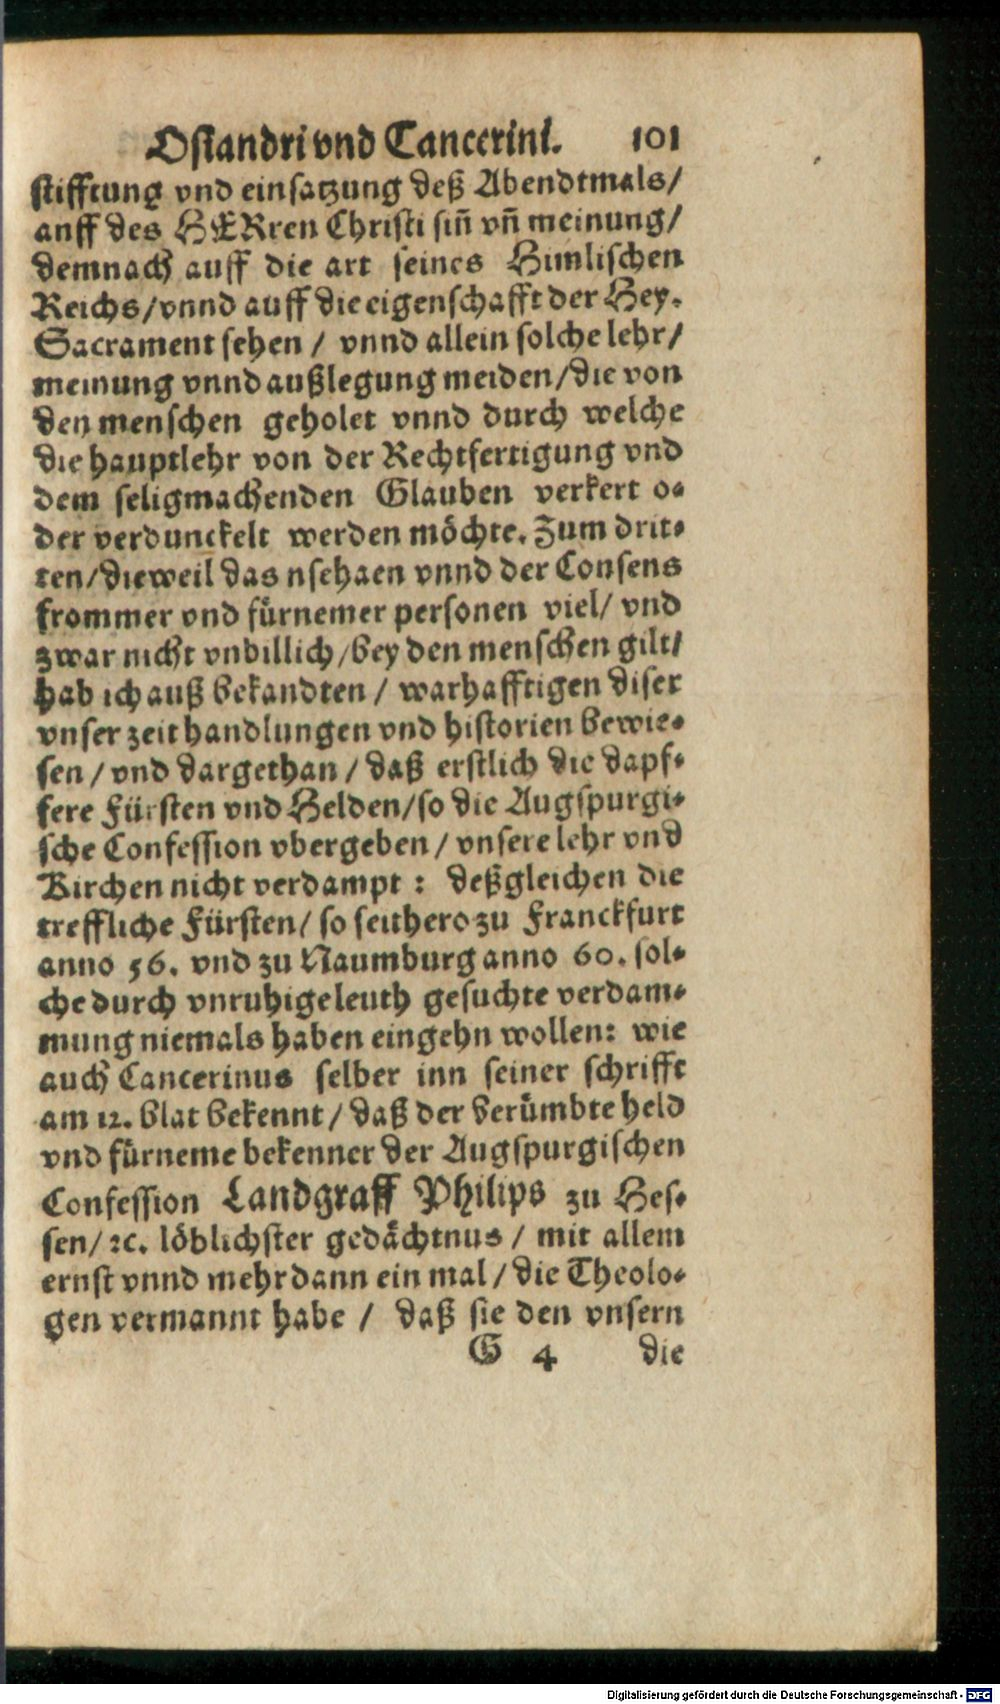 Osiandri vnd Cancerini. 101
stifftung vnd einsatzung deß Abendtmals/
anff des HERren Christi siñ vñ meinung/
demnach auff die art seines Himlischen
Reichs/vnnd auff die eigenschafft der Hey.
Sacrament sehen / vnnd allein solche lehr/
meinung vnnd außlegung meiden/die von
den menschen geholet vnnd durch welche
die hauptlehr von der Rechtfertigung vnd
dem seligmachenden Glauben verkert o-
der verdunckelt werden möchte. Zum drit-
ten/dieweil das nsehaen vnnd der Consens
frommer vnd fürnemer personen viel/ vnd
zwar nicht vnbillich/bey den menschen gilt/
hab ich auß bekandten / warhafftigen diser
vnser zeit handlungen vnd historien bewie-
sen / vnd dargethan / daß erstlich die dapf-
fere Fürsten vnd Helden/so die Augspurgi-
sche Confession vbergeben / vnsere lehr vnd
Kirchen nicht verdampt : deßgleichen die
treffliche Fürsten/ so seithero zu Franckfurt
anno 56. vnd zu Naumburg anno 60. sol-
che durch vnruhige leuth gesuchte verdam-
mung niemals haben eingehn wollen: wie
auch Cancerinus selber inn seiner schrifft
am 12. blat bekennt / daß der berümbte held
vnd fürneme bekenner der Augspurgischen
Confession Landgraff Philips zu Hes-
sen/ ꝛc. löblichster gedächtnus / mit allem
ernst vnnd mehr dann ein mal / die Theolo-
gen vermannt habe / daß sie den vnsern
G 4 die
Digitalisierung gefördert durch die Deutsche Forschungsgemeinschaft - DFG